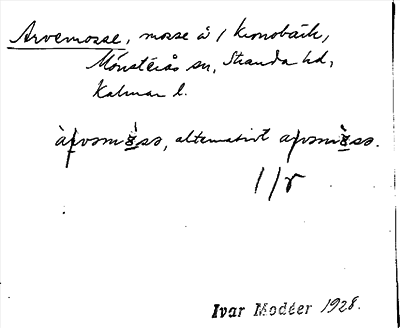 Arvemosse, mosse å 1 Kronobäck,
Mönsterås sn, Stranda hd,
Kalmar l.
alternativt
1/8
Ivar Modéer 1928.